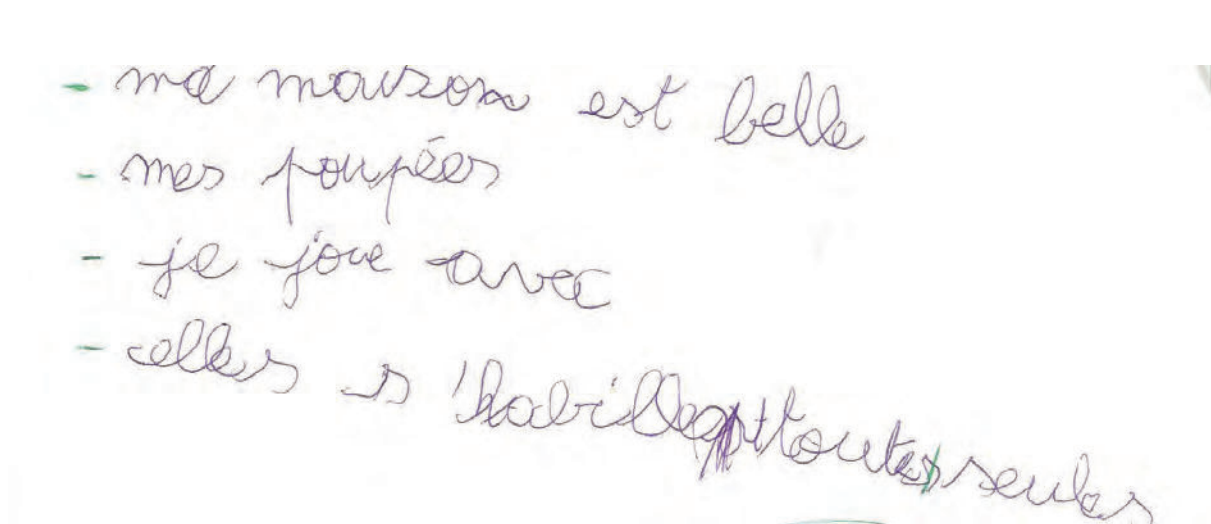 - ma maison est belle
- mes poupées
- je joue avec
- elles s'habillent toutes seules